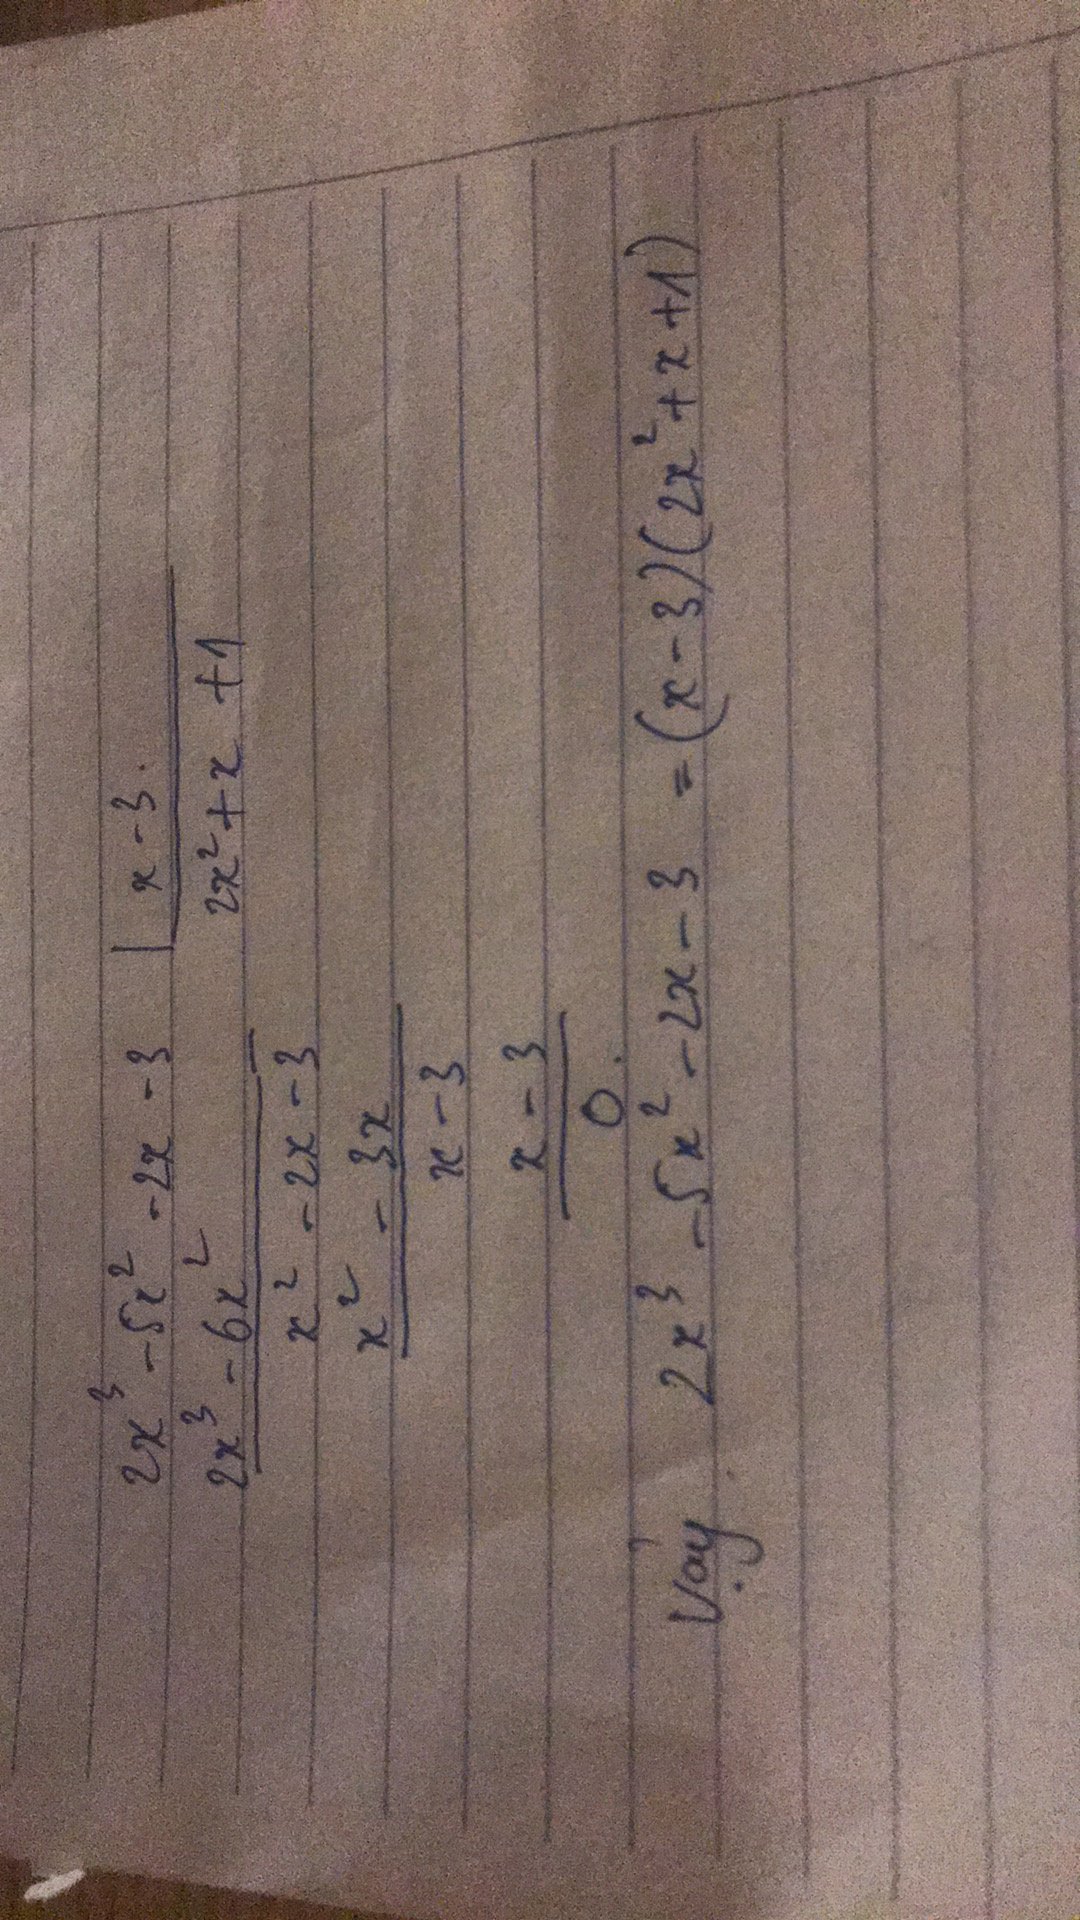 2x³ - 5x² - 2x - 3 | x - 3.
2x³ - 6x² 2x² + x + 1
x² - 2x - 3
x² - 3x
x - 3
x - 3
0.
Vậy 2x³ - 5x² - 2x - 3 = (x - 3)(2x² + x + 1)